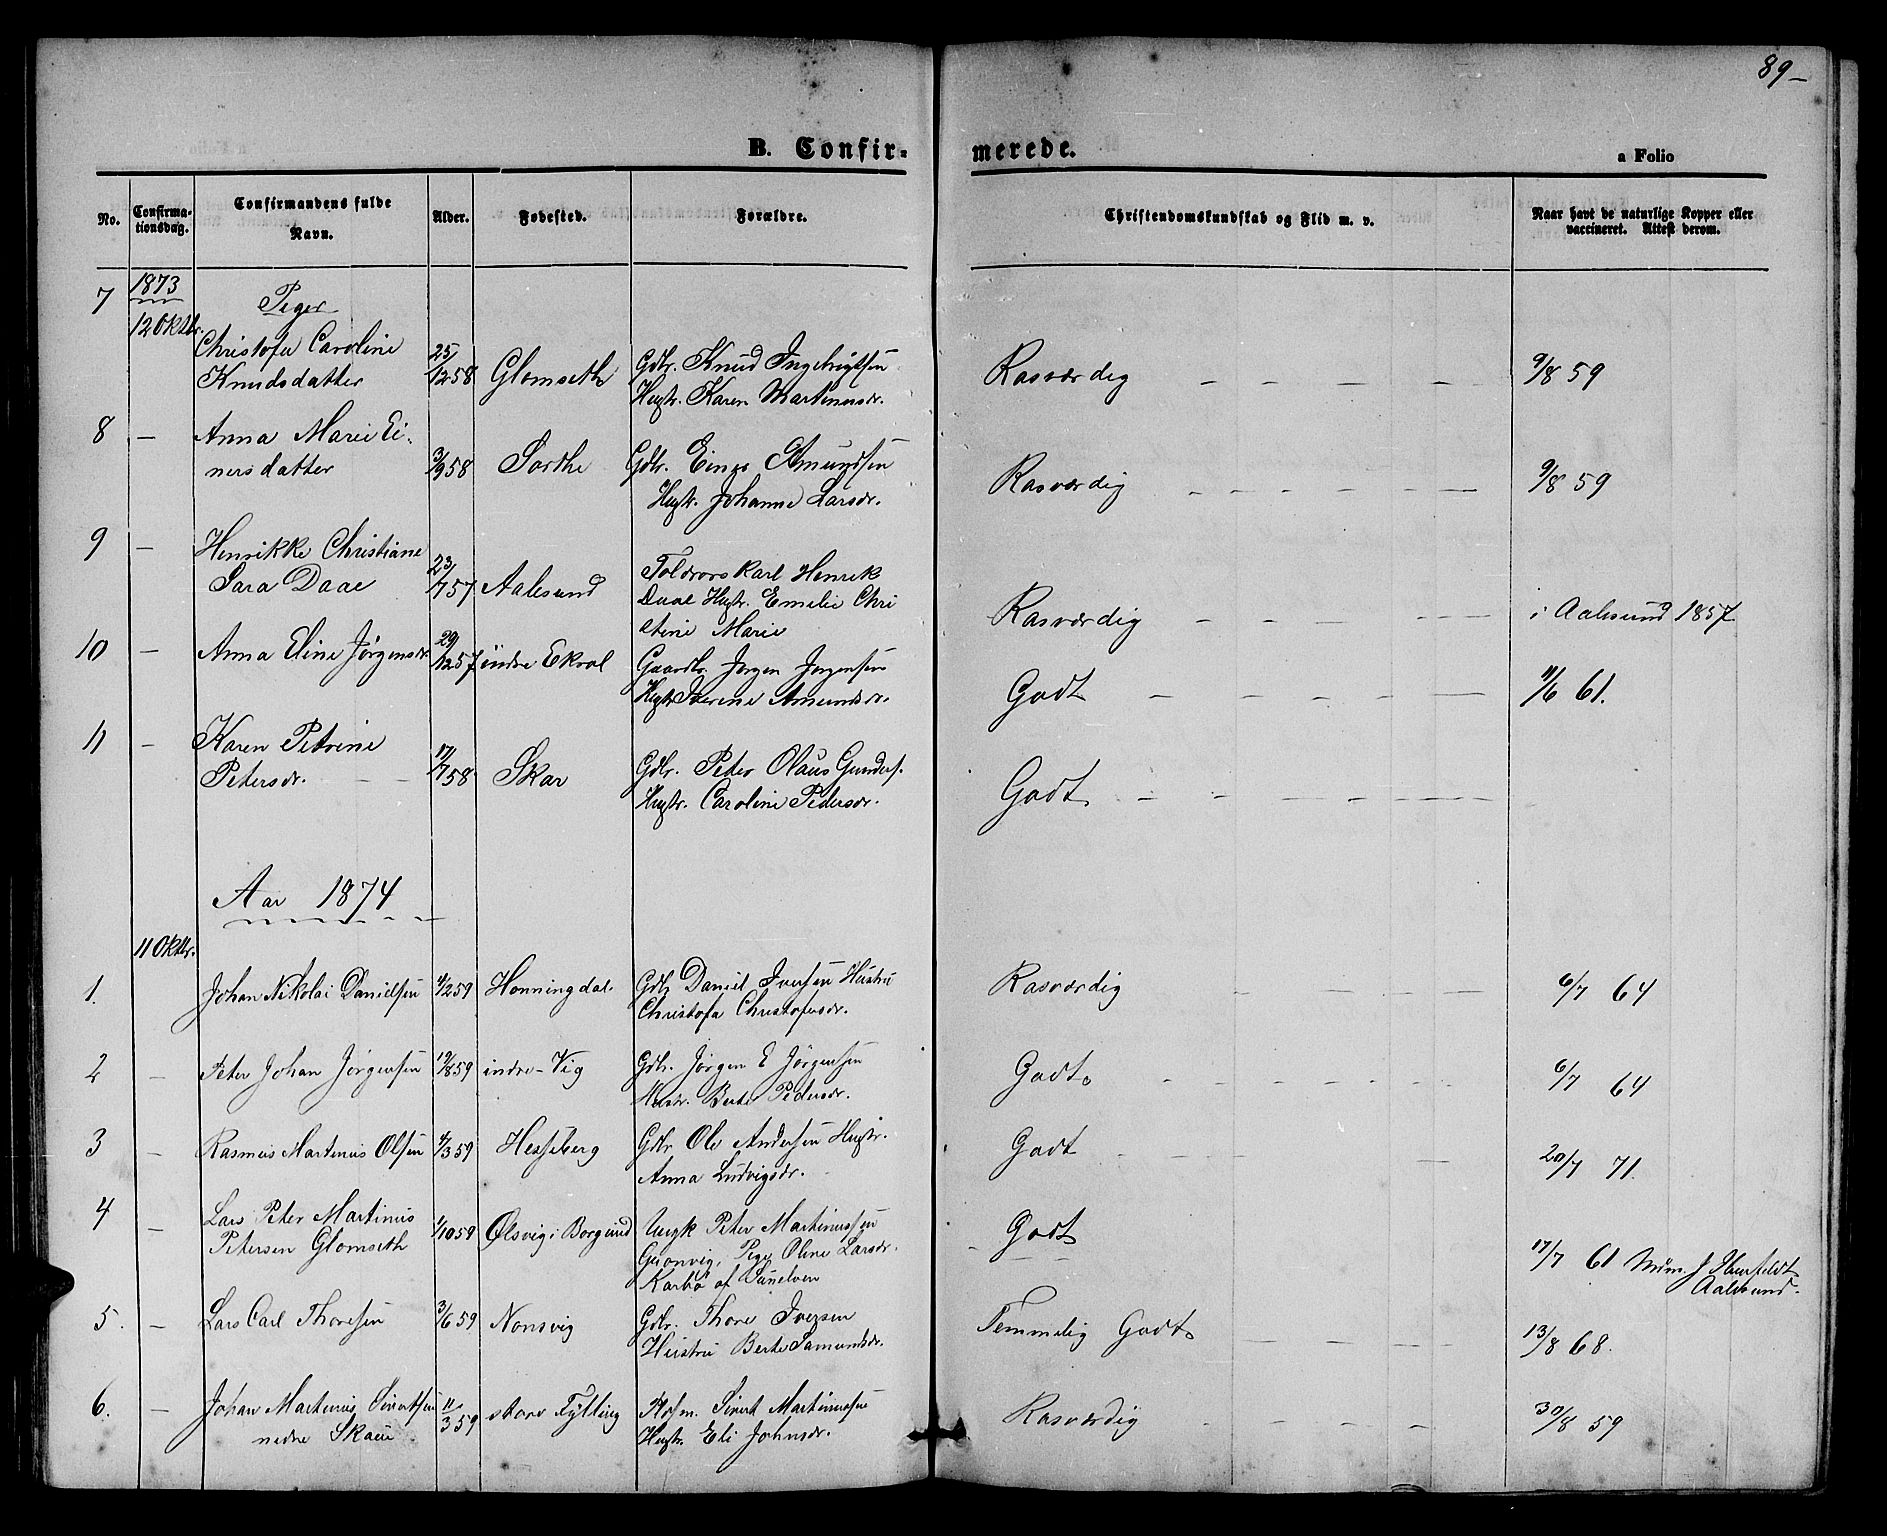 89-
B. Confir-
merede.
a Folio
No.
Confirma-
tionsdag.
Confirmandens fulde
Navn.
Alder.
Fødested.
Forældre.
Christendomskundskab og Flid m. v.
Naar havt de naturlige Kopper eller
vaccineret. Attest derom.
1873
7 Piger
12 Oktbr.
Christofa Caroline 25/
Knudsdatter 12 58 Glomseth Gdbr. Knud Ingebrigtsen Rasværdig - - - - - 9/8 59
Hustr. Karen Martinusdr.
8 - Anna Marie Ei-
nersdatter 3/9 58 Sorthe Gdbr. Einer Amundsen Rasværdig - - - - - 9/8 59
Hustr. Johanne Larsdr.
9 - Henrikke Christiane
Sara Daae 23/7 57 Aalesund Toldrorskarl Henrik
Daae Hustr. Emelie Chri
stine Marie Rasværdig - - - - - i Aalesund 1857
10 - Anna Eline Jørgensdr. 29/12 57 indre Ekrol Gaardbr. Jørgen Jørgensen
Hustr. Severine Amundsdr. Godt - - - - - 11/6 61.
11 - Karen Petrine
Petersdr. 17/7 58 Skar Gdbr. Peter Olaus Gunders. Godt - - - - -
Hustr. Caroline Pedersdr.
Aar 1874
11 Oktbr.
1. Johan Nikolai Danielsen 4/2 59 Honningdal Gdbr Daniel Iversen Hustru Rasværdig - - - - 6/7 64
Christofa Christofersdr.
2 - Peter Johan Jørgensen 19/8 59 indre-Vig Gdbr. Jørgen E Jørgensen Godt - - - - - 6/7 64
Hustr. Berte Pedersdr.
3 - Rasmus Martinus Olsen 4/3 59 Hessberg Gdbr Ole Andersen Hustr. Godt - - - - 20/7 71.
Anna Ludvigsdr.
4 - Lars Peter Martinus
Petersen Glomseth 1/10 59 Ølsvig i Borgund Ungk Peter Martinussen Godt
Gronvig, Pige Oline Larsdr.
Karbø af Sunelven 17/7 61 J Ibenfeldt
Aalesund.
5. - Lars Carl Thoresen 3/6 59 Nonsvig Gdbr. Thore Iversen Temmelig Godt - - - - - 13/8 68.
Hustru Berte Samundsdr.
6. - Johan Martinus Sivertsen 11/3 59 store Fylling Sivert Martinussen Rasværdig - - - - 30/8 59
nedre Skaue Hustr. Eli Johnsdr.